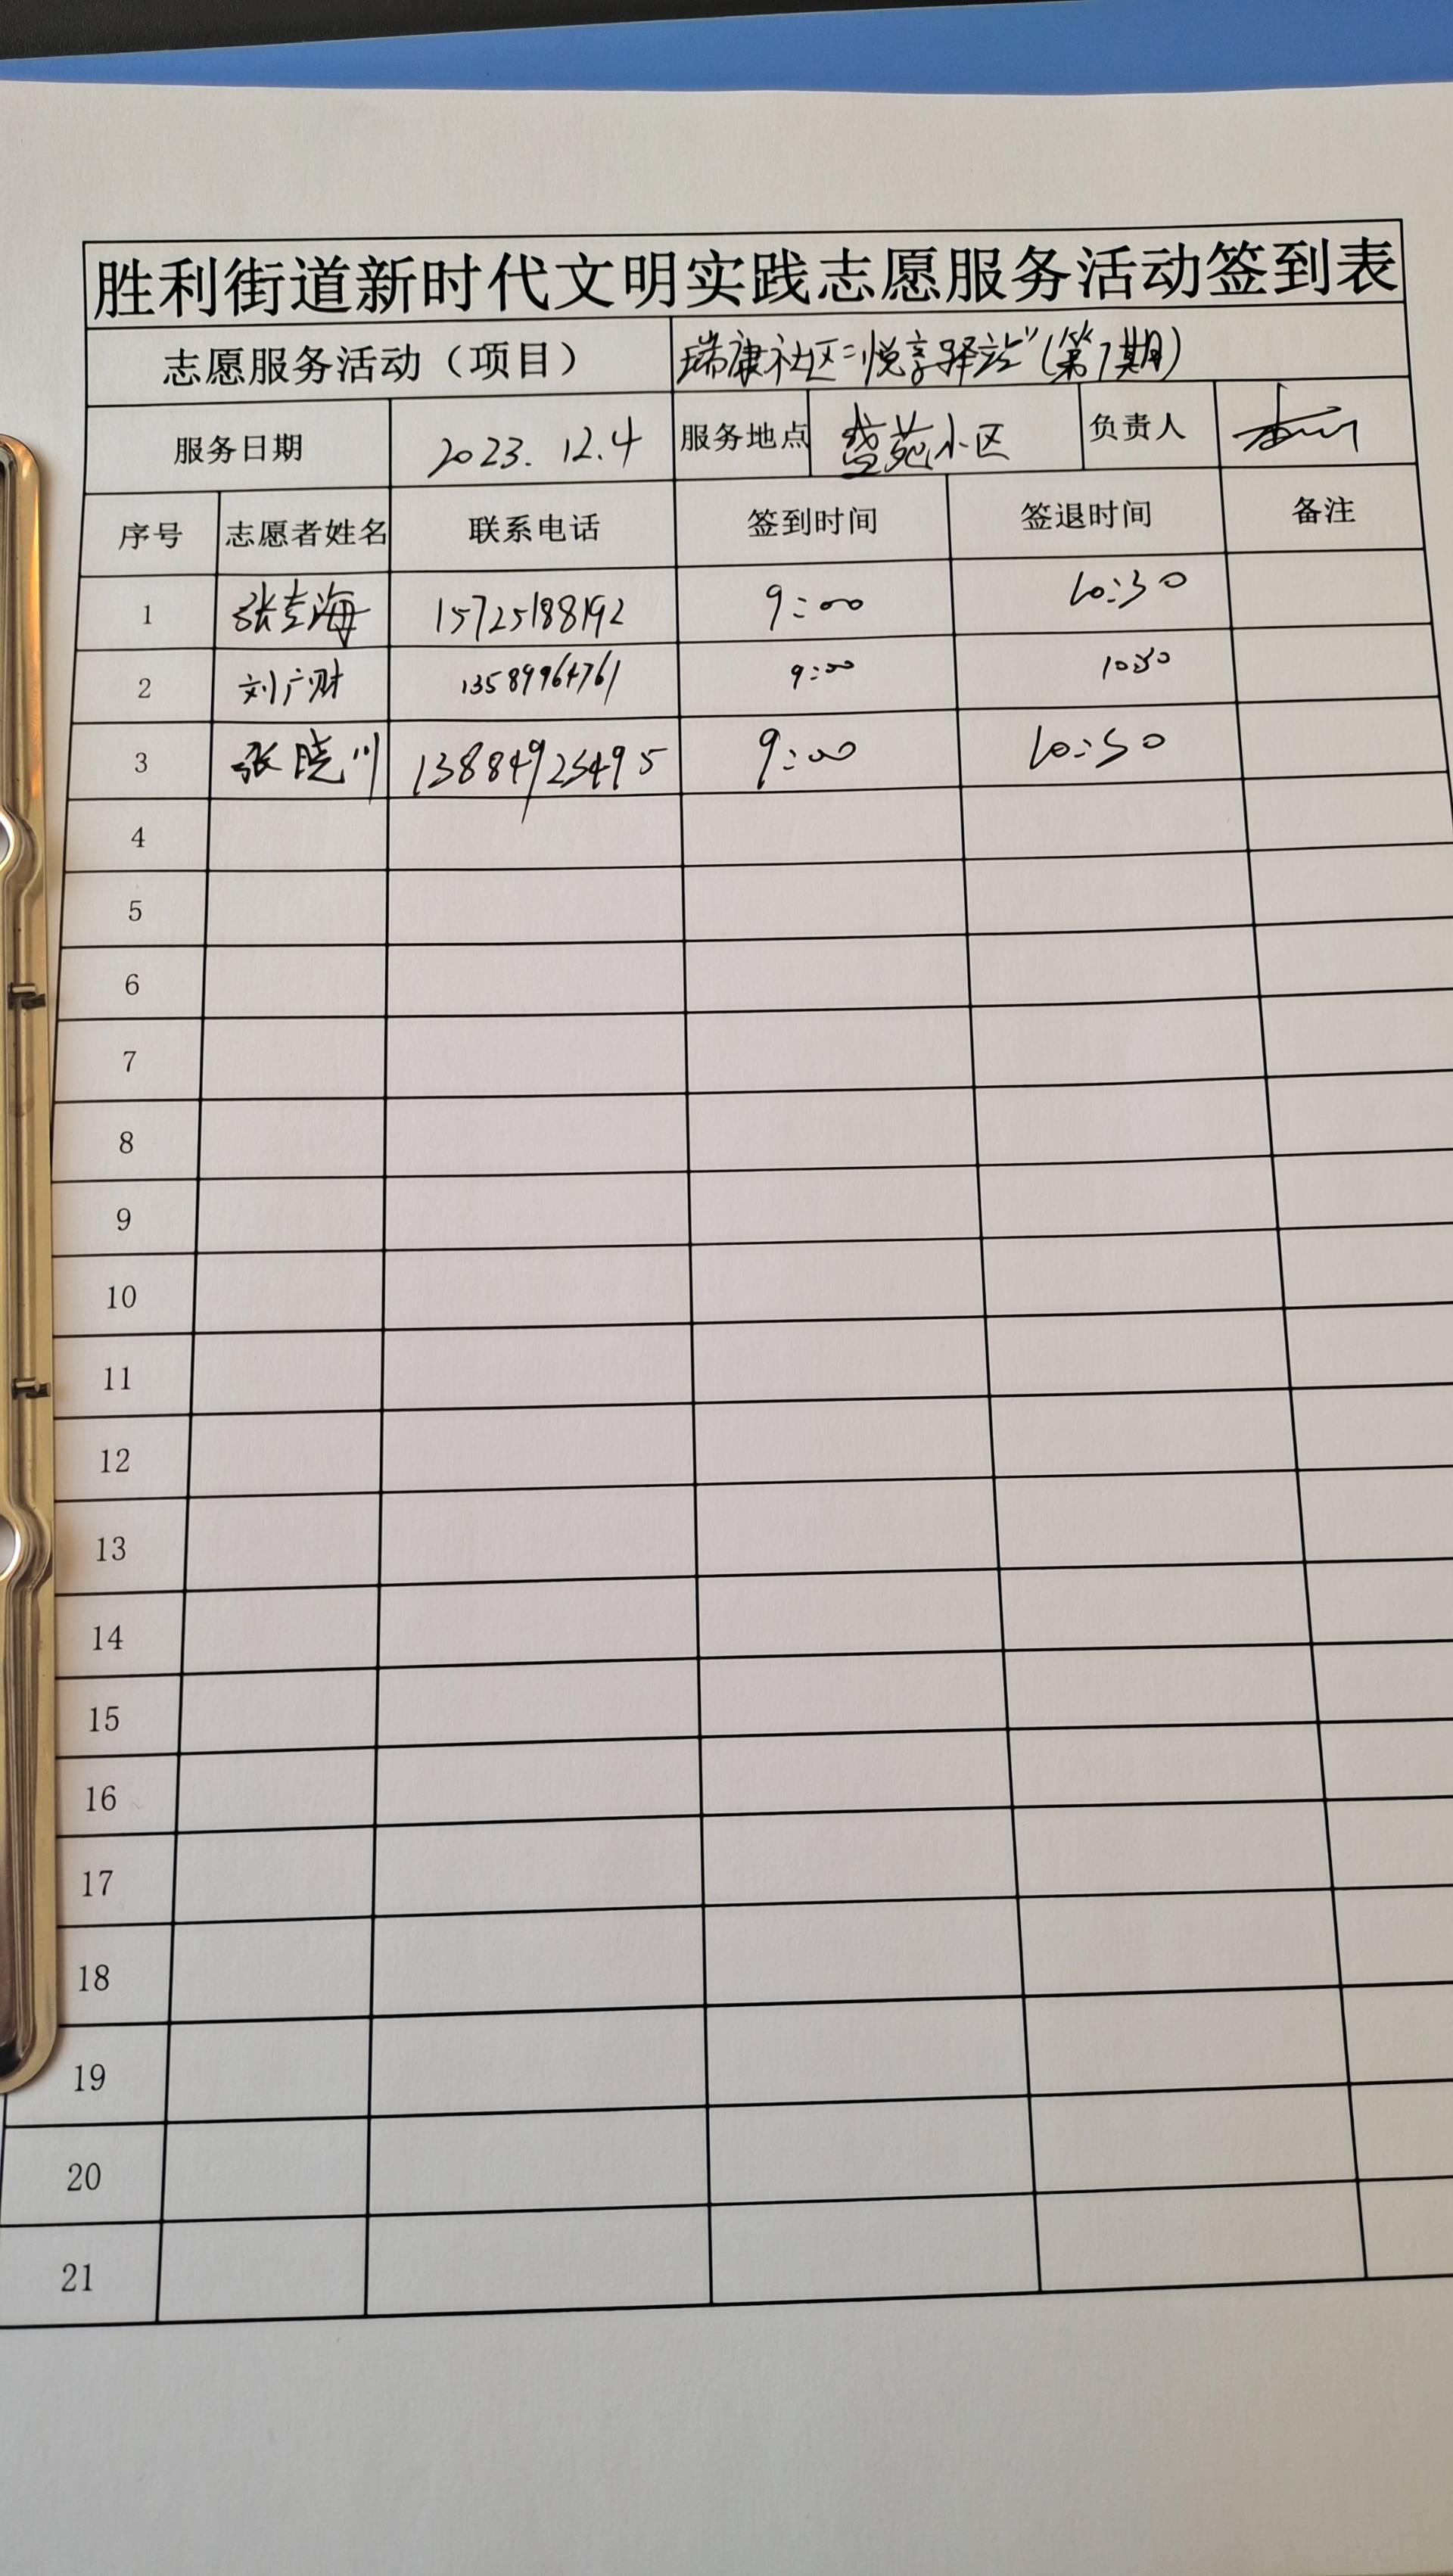 胜利街道新时代文明实践志愿服务活动签到表
志愿服务活动（项目） 瑞康社区"悦享驿站"(第7期)
服务日期 2023.12.4 服务地点 盛苑小区 负责人
序号 志愿者姓名 联系电话 签到时间 签退时间 备注
1 张志海 15725188192 9:00 10:30
2 刘广财 13589964761 9:00 10:30
3 张晓川 13884925495 9:00 10:30
4
5
6
7
8
9
10
11
12
13
14
15
16
17
18
19
20
21